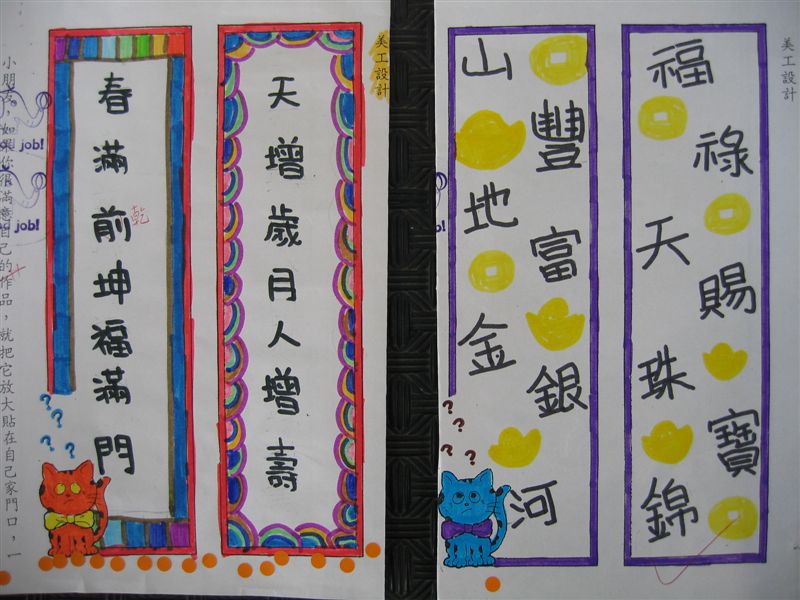 美工設計
天增歲月人增壽
春滿前坤福滿門
乾
小朋友，如果你很滿意自己的作品，就把它放大貼在自己家門口，一
job!
job!
美工設計
福祿天賜珠寶錦
山豐地富金銀河
? ? ? ?
? ? ? ?